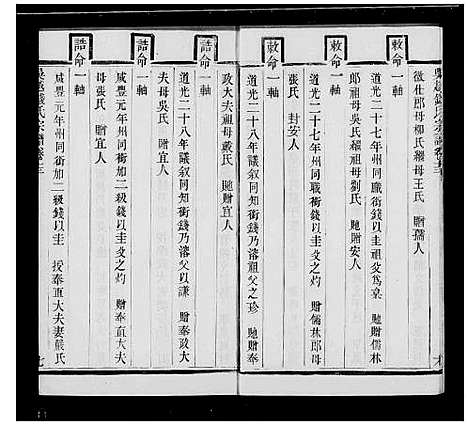 徵仕郎母柳氏繼母王氏 贈孺人
敕命一軸
道光二十七年州同職銜錢以圭𠬧父為桌 貤贈儒林
郎祖母吳氏繼祖母劉氏 貤贈安人
敕命一軸
道光二十七年州同職銜錢以圭父之灼 贈儒林郎母
張氏 封安人
敕命一軸
道光二十八年議叙同知銜錢乃濬祖父之珍 貤贈奉
政大夫祖母戴氏 貤贈宜人
誥命一軸
道光二十八年議叙同知銜錢乃濬父以謙 贈奉政大
夫母吳氏 贈宜人
誥命一軸
咸豐元年州同銜加二級錢以圭父之灼 贈奉直大夫
母張氏 贈宜人
誥命一軸
咸豐元年州同銜加二級錢以圭 授奉直大夫妻嚴氏
七